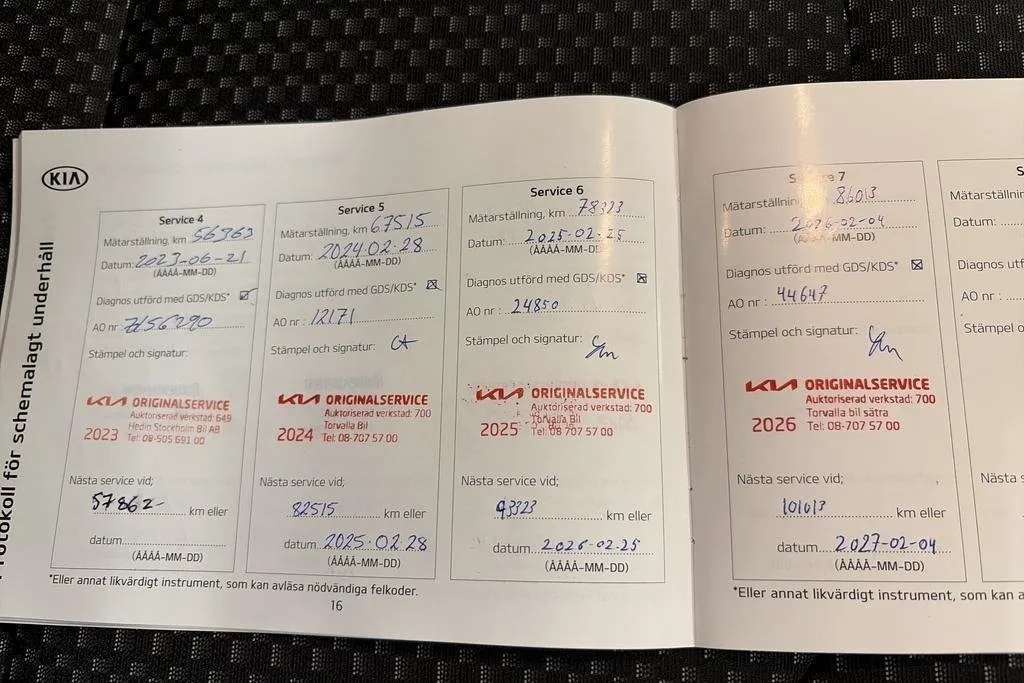 KIA
Protokoll för schemalagt underhåll
Service 4
Mätarställning, km 56363
Datum: 2023-06-21
(ÅÅÅÅ-MM-DD)
Diagnos utförd med GDS/KDS*
AO nr
Stämpel och signatur:
KIA ORIGINALSERVICE
Auktoriserad verkstad: 649
Hedin Stockholm Bil AB
2023 Tel: 08-505 691 00
Nästa service vid;
57862- km eller
datum
(ÅÅÅÅ-MM-DD)
Service 5
Mätarställning, km 67515
Datum: 2024-02-28
(ÅÅÅÅ-MM-DD)
Diagnos utförd med GDS/KDS*
AO nr : 12171
Stämpel och signatur:
KIA ORIGINALSERVICE
Auktoriserad verkstad: 700
Torvalla Bil
2024 Tel: 08-707 57 00
Nästa service vid;
82515 km eller
datum 2025-02-28
(ÅÅÅÅ-MM-DD)
Service 6
Mätarställning, km 78323
Datum: 2025-02-25
(ÅÅÅÅ-MM-DD)
Diagnos utförd med GDS/KDS*
AO nr : 24850
Stämpel och signatur:
KIA ORIGINALSERVICE
Auktoriserad verkstad: 700
Torvalla Bil
2025 Tel: 08-707 57 00
Nästa service vid;
93323 km eller
datum 2026-02-25
(ÅÅÅÅ-MM-DD)
*Eller annat likvärdigt instrument, som kan avläsa nödvändiga felkoder.
16
Service 7
Mätarställning, 86013
Datum: 2026-02-04
(ÅÅÅÅ-MM-DD)
Diagnos utförd med GDS/KDS*
AO nr : 44647
Stämpel och signatur:
KIA ORIGINALSERVICE
Auktoriserad verkstad: 700
Torvalla bil sätra
2026 Tel: 08-707 57 00
Nästa service vid;
101013 km eller
datum 2027-02-04
(ÅÅÅÅ-MM-DD)
*Eller annat likvärdigt instrument, som kan
S
Mätarställnin
Datum:
Diagnos utfö
AO nr :
Stämpel o
Nästa s